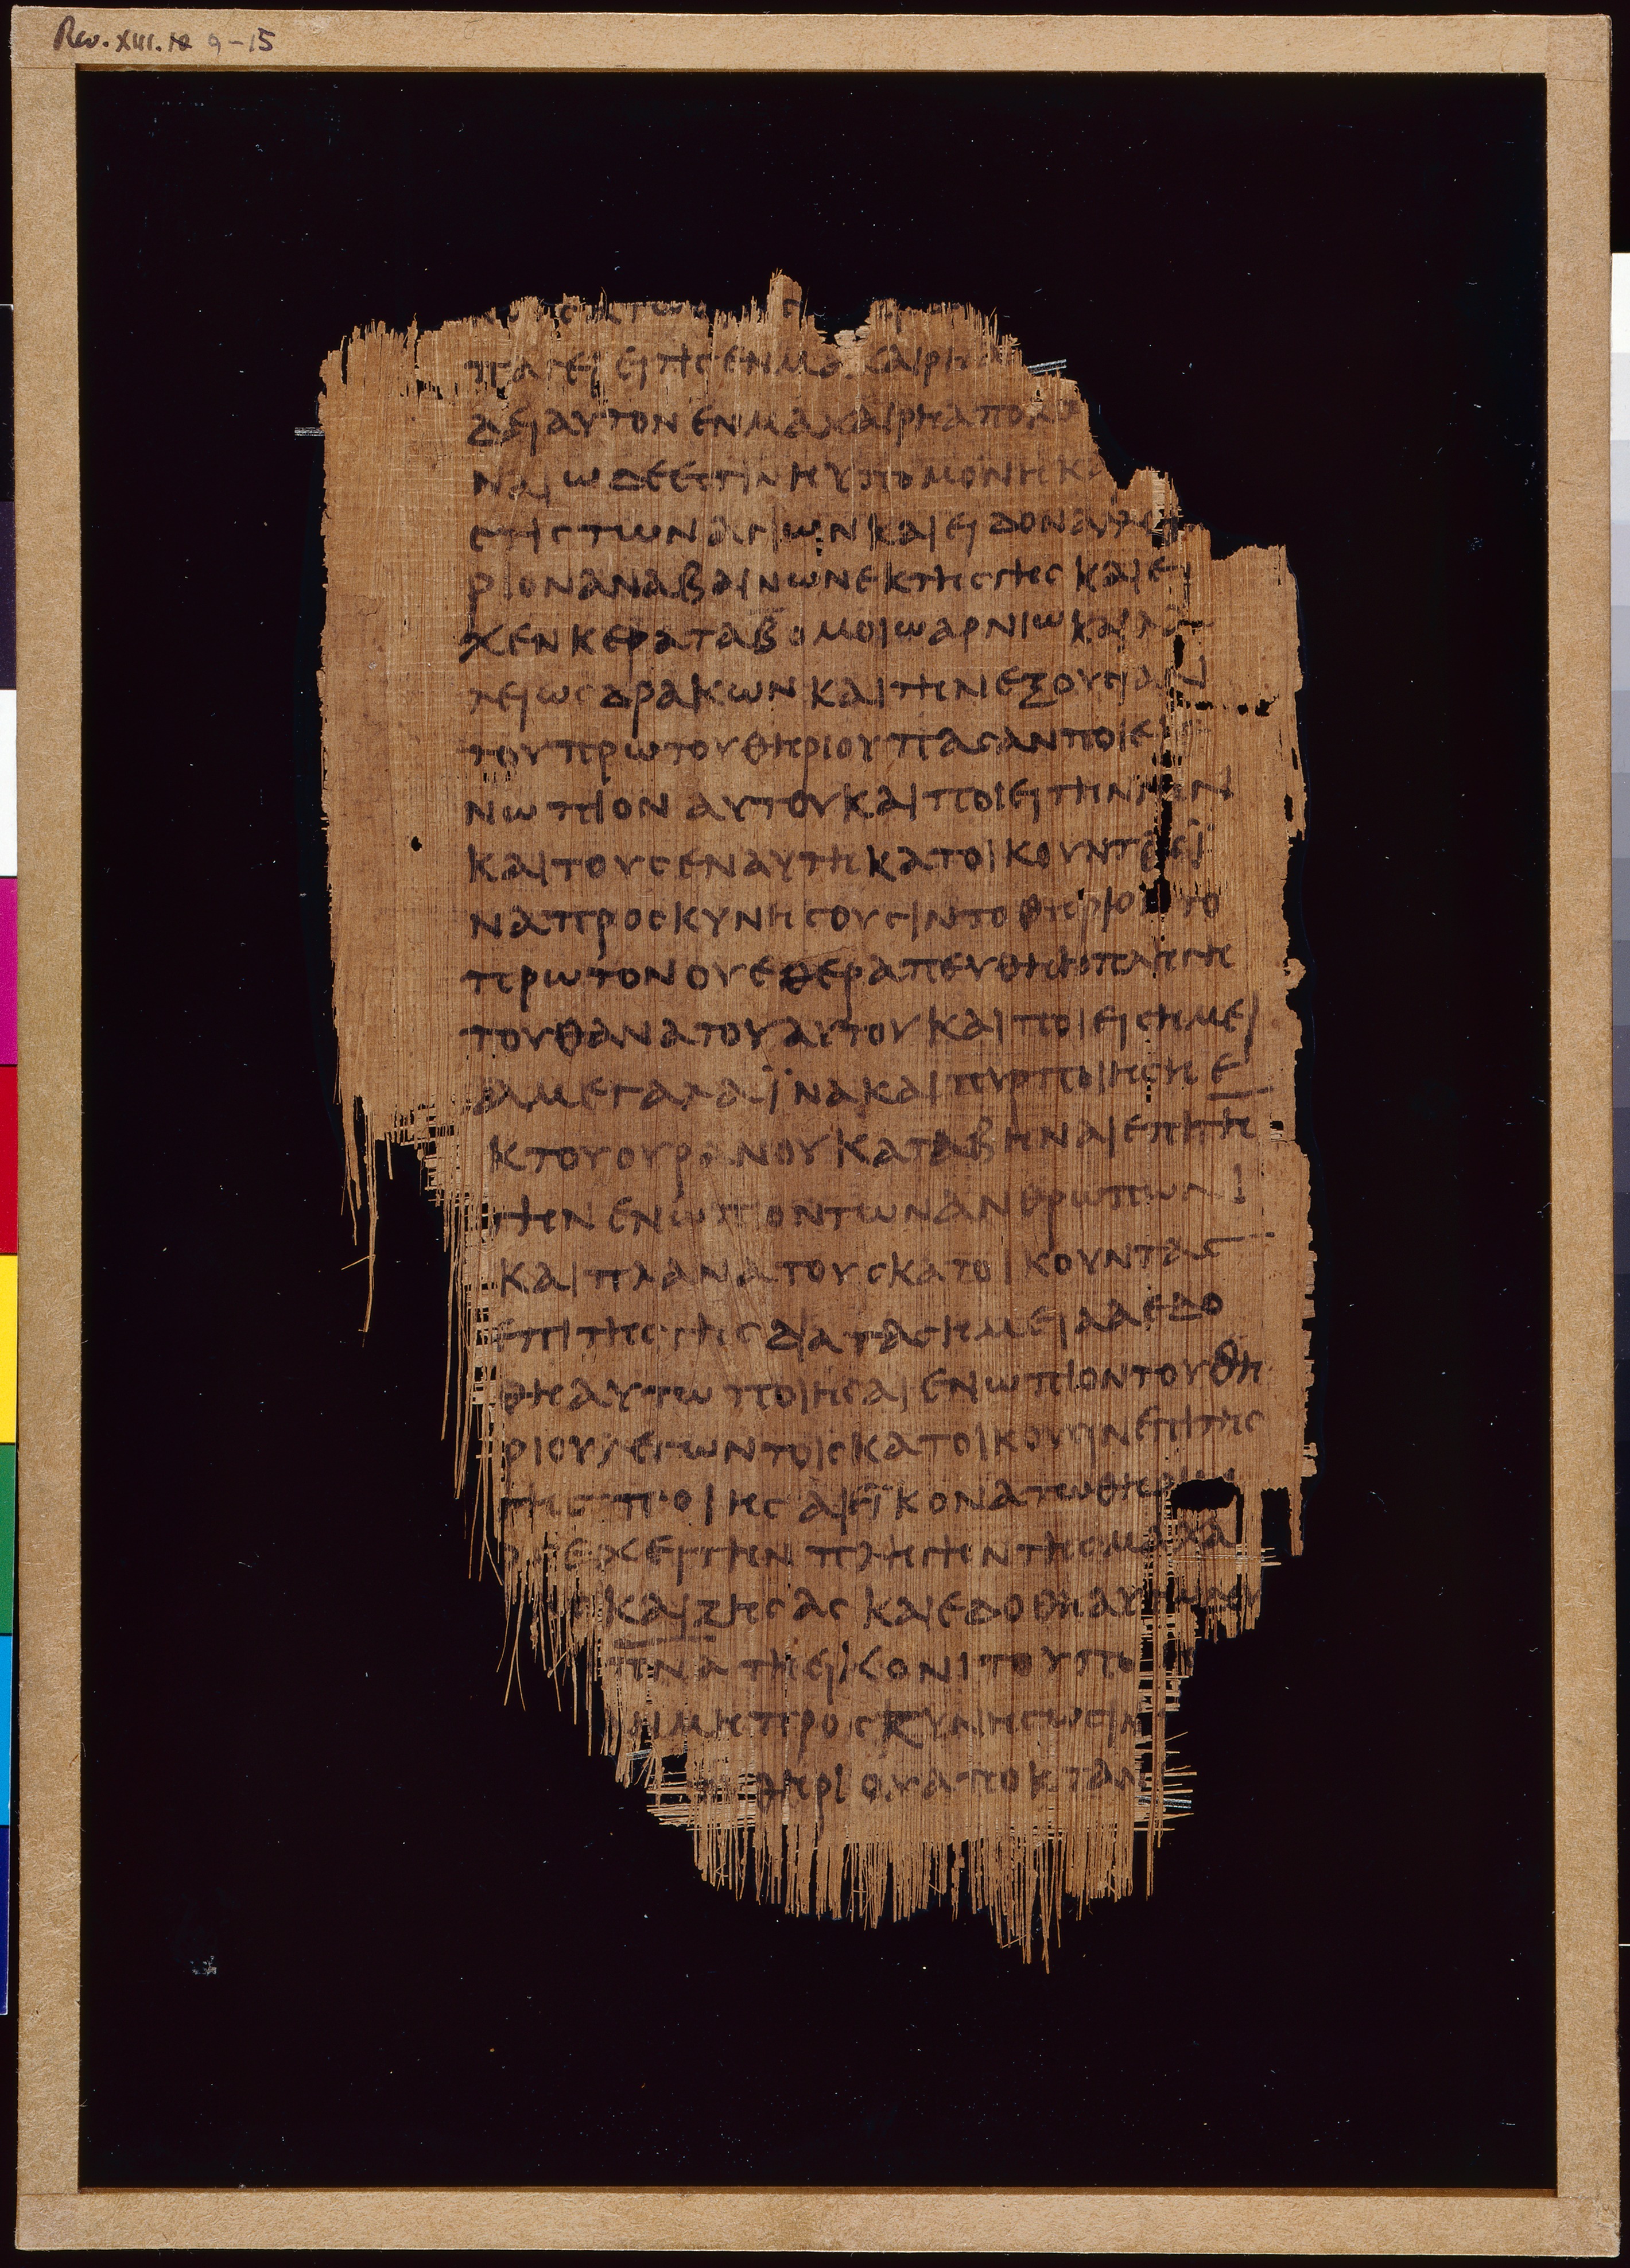 Rev. XIII. 9-15
παγει ει τις εν μαχαιρη
δει αυτον εν μαχαιρη αποκ
ναι ωδε εστιν η υπομονη κα
στις των αγιων και ειδον αλλο
ριον αναβαινων εκ της γης και ει
χεν κερατα β̅ ομοιω αρνιω και
λει ως δρακων και την εξουσιαν
του πρωτου θηριου πασαν ποιει
νωπιον αυτου και ποιει την
και τους εν αυτη κατοικουντας ϊ
να προσκυνησουσιν το θηριον το
πρωτον ου εθεραπευθη η πληγη
του θανατου αυτου και ποιει σημει
α μεγαλα ϊνα και πυρ ποιηση ε
κ του ουρανου καταβηναι επι τη
γην ενωπιον των ανθρωπων
και πλανα τους κατοικουντας
επι της γης δια τα σημεια α εδο
θη αυτω ποιησαι ενωπιον του θη
ριου λεγων τοις κατοικουσιν επι της
γης ποιησαι εϊκονα τω θηριω
ος εχει την πληγην της μαχα
και ζησας και εδοθη αυτω
π̅ν̅α̅ τη εικονι του ποι
μη προσκυνησωσιν
θηριου αποκταν